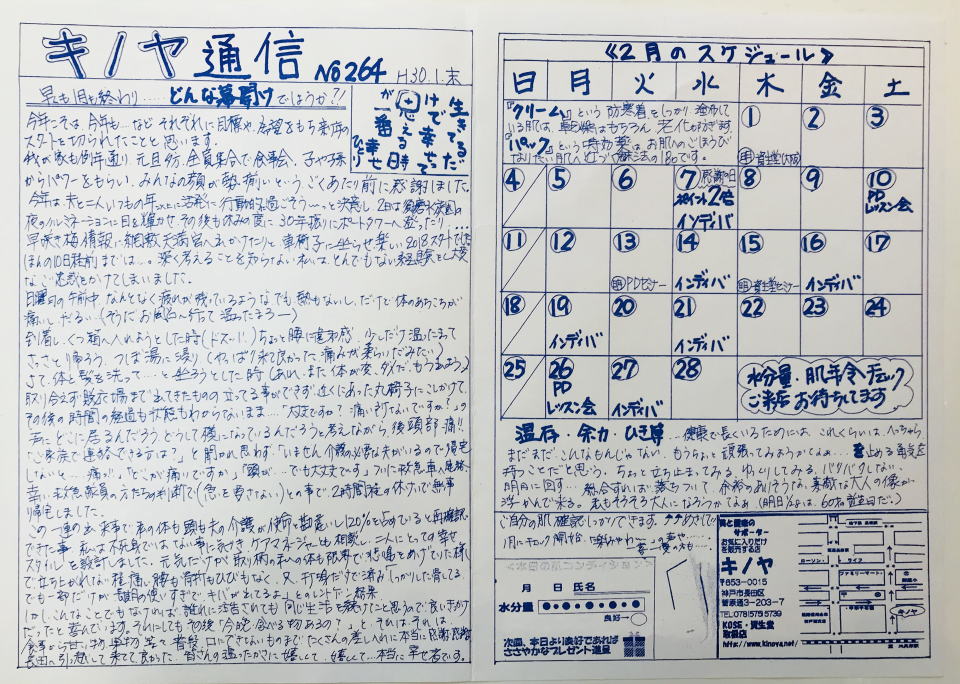 キノヤ通信 No264 H30.1.末
早も1月も終わり……どんな幕開けでしょうか?!
生きてるだ
けで幸せって
思える時
が一番幸せ
ひとり
今年こそは、今年も…など それぞれに目標や、希望をもち新年の
スタートを切られたことと思います。
我が家も例年通り 元旦の 全員集合で食事会、子や孫
からパワーをもらい、みんなの顔が勢揃いという ごくあたり前に感謝しました。
今年は 夫と二人いつもの年
夜のルミネーションに目を輝かせ その後も休みの度に 30年振りにポートタワーへ登ったり…
早咲き梅情報に綱敷天満宮へ出かけたりと 車椅子に坐らせ楽しい2018スタートでした
ほんの10日程前までは…。深く考えることを知らない私は、とんでもない経験をし大変
なご迷惑をかけてしまいました。
日曜日の午前中、なんとなく疲れが残っているような でも熱もないし、だけど体のあちこちが
痛いし だるい…(そうだ お風呂へ行って温ったまろー)
到着し、くつ箱へ入れようとした時(ドスッ!!) ちょっと腰に違和感 少しだけ温ったまって
さっさと帰ろう、つぼ湯に浸り(やっぱり来て良かった、痛みが柔らいだみたい)
さて、体と髪を洗って…と坐ろうとした時(あれ、また体が変、ダメだ、もう
取り合えず脱衣場まで出てきたものの 立ってる事ができず近くにあった丸椅子にこしかけて、
その後の時間の経過も状態もわからないまま…「大丈夫ですか? 痛い所ないですか?」の
声に どこに居るんだろう どうして横になっているんだろうと考えながら、後頭部 痛!!
「ご家族で連絡できる方は?」と聞かれ思わず「いません 介護の必要な夫がいるので帰宅
しないと… 痛が」「どこが痛いですか」「頭が…でも大丈夫です」ついに救急車の
幸い救急隊員の方たちの判断で(急を要さない)との事で、2時間程の休けいで無事
帰宅しました。
この一連の出来事で、私の体も頭も夫の介護が使命と勘違いし120%と
できた事 私は不死身ではない事に気づき ケアマネージャーとも相談し、二人にとっての幸せ
スタイルを
で立ち上がれない程 痛い腰も骨折もひびもなく 又、打
でも一部だけが
しかし、こんなことでもなければ 誰れに忠告されても同じ生活を続けてたことと思うので 良いきっかけ
だったと喜んでいます。それにしても その後「今晩 食べる物あるの?」と
長田へ引っ越して来て良かった。皆さんの温ったかさに 嬉しくて 嬉しくて…本当に幸せ者です。
《2月のスケジュール》
日 月 火 水 木 金 土
『クリーム』という防寒着をしっかり塗布して
いる肌は、乾燥はもちろん 老化も防ぎます。
『パック』という特効薬は お肌のごほうび
なりたい肌へ 魔法の180です。
1 2 3
資生堂(大阪)
4 5 6 7 8 9 10
感謝日
ポイント2倍
インディバ
PD
レッスン会
11 12 13 14 15 16 17
PDセミナー インディバ 資生堂セミナー インディバ
18 19 20 21 22 23 24
インディバ インディバ
25 26 27 28
PD
レッスン会 インディバ
水分量・肌年令チェック
ご来店 お待ちしてます
温存・余力・ひき算……健康で長くいるためには、これくらいは、へっちゃら
まだまだ こんなもんじゃない、もうちょっと頑張ってみようかなぁ…を止める勇気を
持つことだと思う。ちょっと立ち止まってみる、ゆっくりしてみる、バタバタしない
明日に回す… 総合すれば 落ちついて 余裕のありそうな、素敵な大人の像が
浮かんで来る。私もそろそろ大人になろうかなぁ (明日1/25は、60才誕生日だ。)
ご自分の肌確認しっかりできます。
1月にチェック開始、
月 日 氏名
水分量
良好
次回、本日より良好であれば
ささやかなプレゼント進呈
美と健康の
サポーター
お気に入りだけ
を販売する店
キノヤ
〒653-0015
神戸市長田区
菅原通3-203-7
TEL 078(575)5739
KOSE・資生堂
取扱店
http://www.kinoya.net/
ローソン
ライフ
ファミリーマート
キノヤ